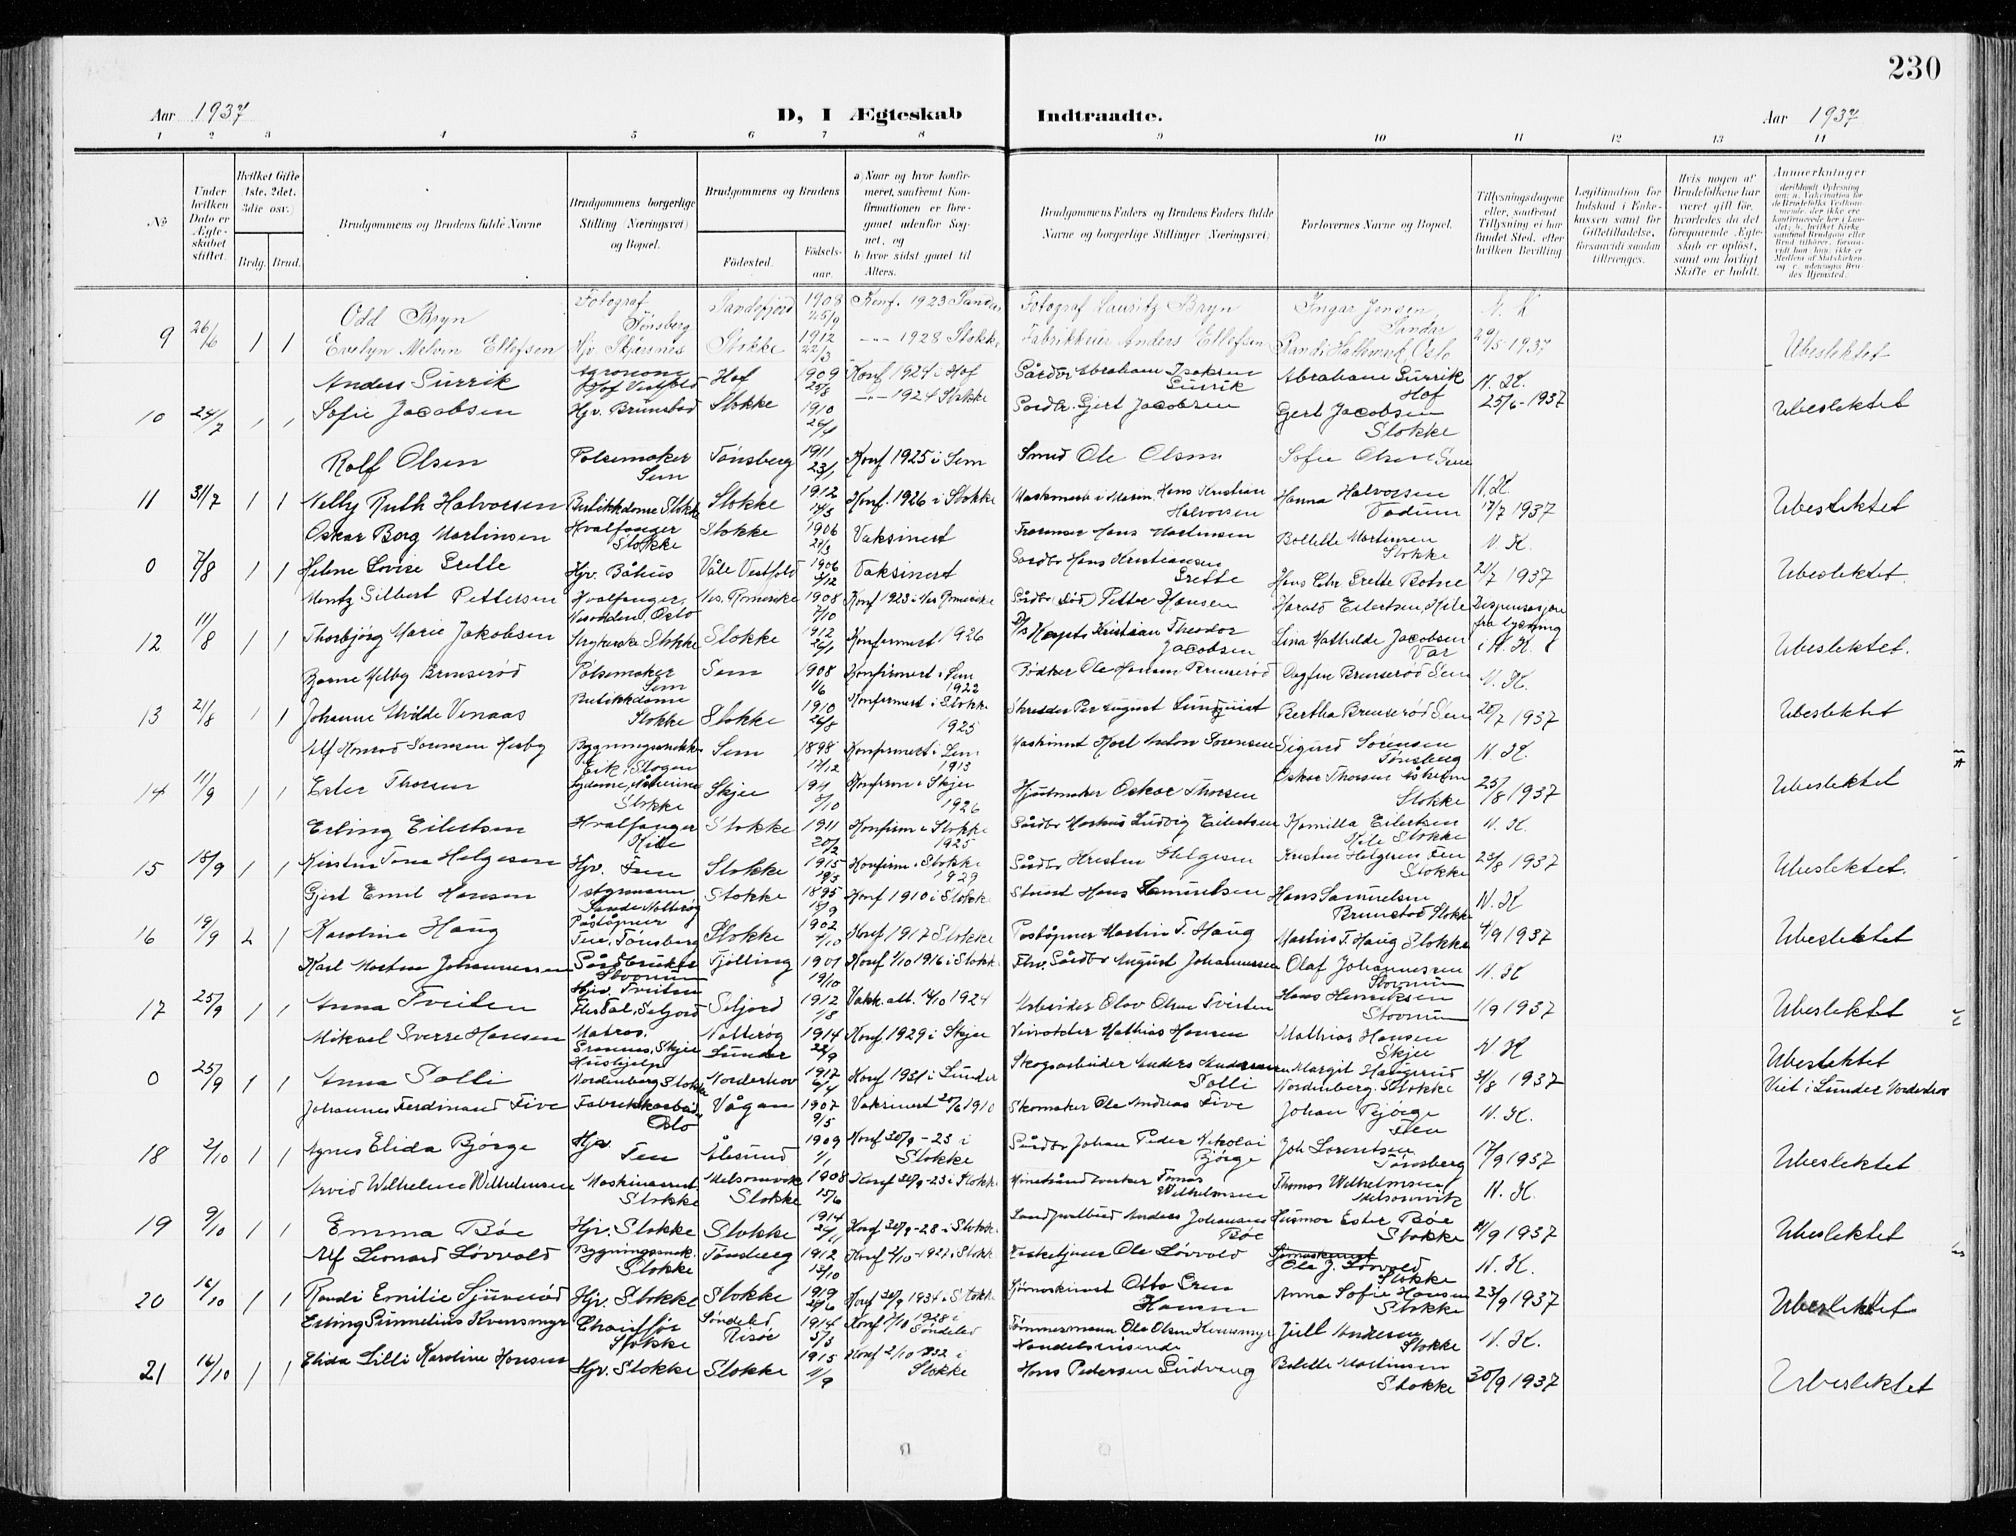 230
Aar 1937
D, I Ægteskab Indtraadte.
Aar 1937
1 2 3 4 5 6 7 8 9 10 11 12 13 14
No
Under hvilken Dato er Ægteskabet stiftet.
Hvilket Gifte 1ste, 2det, 3die osv.
Brdg. Brud.
Brudgommens og Brudens fulde Navne
Brudgommens borgerlige Stilling (Næringsvei) og Bopæl.
Brudgommens og Brudens
Fødested. Fødselsaar.
a) Naar og hvor konfirmeret, saafremt Konfirmationen er foregaaet udenfor Sognet, og
b) hvor sidst gaaet til Alters.
Brudgommens Faders og Brudens Faders fulde Navne og borgerlige Stillinger (Næringsvei)
Forlovernes Navne og Bopæl.
Tillysningsdagene eller, saafremt Tillysning ei har fundet Sted, efter hvilken Bevilling
Legitimation for Indskud i Enkekassen samt for Giftetilladelse, forsaavidt saadan tiltrænges.
Hvis nogen af Brudefolkene har været gift før, hvorledes da det foregaaende Ægteskab er opløst, samt om lovligt Skifte er holdt.
Anmerkninger
Odd Bryn Fotograf Tønsberg Sandefjord 1908 25/9 Konf. 1923 Sandar Fotograf Lauritz Bryn Ingar Jensen Sandar N. K
9 26/6 1 1 Evelyn Melvin Ellefsen Hjv. Skjærsnes Stokke 1912 22/3 -"- 1928 Stokke Fabrikkeier Anders Ellefsen Randi Oslo 29/5 1937 Ubeslektet
Anders Surrik Agronom Hof Vestfold Hof 1909 25/8 Konf 1924 i Hof Gårdbr Abraham Isaksen Surrik Abraham Surrik Hof N. K.
10 24/7 1 1 Sofie Jacobsen Hjv. Brunstad Stokke 1910 26/4 -"- 1924 Stokke Gårdbr. Gjert Jacobsen Gert Jacobsen Stokke 25/6-1937 Ubeslektet
Rolf Olsen Pølsemaker Sem Tønsberg 1911 23/1 Konf 1925 i Sem Smed Ole Olsen Sofie Olsen Sem N. K.
11 31/7 1 1 Nelly Ruth Halvorsen Butikkdame Stokke Stokke 1912 14/3 Konf. 1926 i Stokke Hans Kristian Halvorsen Hanna Halvorsen Vadum 17/7 1937 Ubeslektet
Oskar Borg Martinsen Hvalfanger Stokke Stokke 1906 21/3 Vaksinert Hans Martinsen Bollette Martinsen Stokke N. K.
0 7/8 1 1 Helene Lovise Grette Hjv. Båhus Våle Vestfold 1906 Vaksinert Gårdbr Hans Kristiansen Grette Hans Chr Grette Botne 21/7 1937 Ubeslektet.
Mentz Gilbert Pettersen Hvalfanger, Oslo Nes. Romerike 1908 7/10 Konf 1923 i Nes Romerike Gårdbr (død) Petter Hansen Harald Eilertsen, Hile Dispensasjon fra lysning
12 11/8 1 1 Thorbjørg Marie Jakobsen Strykerske Stokke Stokke 1912 26/1 Konfirmert 1926 Kristian Theodor Jacobsen Lina Mathilde Jacobsen Vår i N. K. Ubeslektet.
Bjarne Melby Brunserød Pølsemaker Sem Sem 1908 1/6 Konfirmert i Sem 1922 Bødker Ole Hansen Brunserød Dagfin Brunserød Sem N. K.
13 21/8 1 1 Johanne Vinaas Butikkdame Stokke Stokke 1910 26/8 Konfirmert i Stokke 1925 Skredder Per August Lundquist Bertha Brunserød Sem 20/7 1937 Ubeslektet
Alf Konrad Sørensen Hesby Bygningssnekker Eik, Slagen Sem 1898 17/12 Konfirmert i Sem 1913 Maskinist Karl Anton Sørensen Sigurd Sørensen Tønsberg N. K.
14 11/9 1 1 Ester Thorsen Stokke Skjee 191 8/10 Konfirm i Skjee 1926 Hjulmaker Oskar Thorsen Oskar Thorsen Stokke 25/8 1937 Ubeslektet
Erling Eilertsen Hvalfanger Hile Stokke 1911 20/2 Konfirm i Stokke 1925 Gårdbr Markus Ludvig Eilertsen Kamilla Eilertsen Hile Stokke N. K.
15 18/9 1 1 Kirsten Tona Helgesen Hjv. Fen Stokke 1915 19/3 Konfirm i Stokke 1929 Gårdbr Kristen Helgesen Kristen Helgesen Fen Stokke 23/8 1937 Ubeslektet.
Gjert Emil Hansen Stokke 1895 18/9 Konf 1910 i Stokke Hans Samuelsen Hans Samuelsen Brunstad Stokke N. K
16 19/9 2 1 Karoline Haug Poståpner Teie, Tønsberg Stokke 1902 7/10 Konf 1917 Stokke Poståpner Martin T. Haug Martin T. Haug Stokke 4/9 1937 Ubeslektet
Karl Morten Johannessen Gårdbruker Stovnum Tjølling 1901 19/10 Konf 1/10 1916 i Stokke Fhv. Gårdbr August Johannessen Olaf Johannessen Stovnum N. K
17 25/9 1 1 Anna Tveiten Hjv. Tveiten Seljord Seljord 1912 1/8 Vakk. att. 14/10 1924 Arbeider Olav Olsen Tveiten Hans Henriksen Stovnum 11/9 1937 Ubeslektet
Mikael Sverre Hansen Matros, Skjee Nøtterøy 1914 22/9 Konf 1929 i Skjee Veivokter Mathias Hansen Mathias Hansen Skjee N K
0 25/9 1 1 Anna Solli Hushjelp Nordenberg Stokke Lunder Norderhov 1917 6/4 Konf 1931 i Lunder Skogsarbeider Anders Andersen Solli Margit Haugerud Nordenberg. Stokke 31/8 1937 Ubeslektet Viet i Lunder Norderhov
Johannes Ferdinand Five Fabrikkarbeid. Oslo Vågan 1907 9/5 Vaksinert 20/6 1910 Skomaker Ole Andreas Five Johan Bjørge Fen N. K.
18 2/10 1 1 Agnes Elida Bjørge Hjv Fen Ålesund 1909 1/1 Konf 30/9-23 i Stokke Gårdbr Johan Peder Nikolai Bjørge Joh Lorentsen Tønsberg 17/9 1937 Ubeslektet
Arvid Wilhelm Wilhelmsen Maskinassist Stokke Melsomvik Stokke 1908 15/6 Konf 30/9-23 i Stokke Tomas Wilhelmsen Thomas Wilhelmsen Melsomvik N. K.
19 9/10 1 1 Emma Bøe Hjv. Stokke Stokke 1914 Konf 30/9-28 i Stokke Anders Johansen Bøe Husmor Ester Bøe Stokke 21/9 1937 Ubeslektet
Alf Leonard Løvvold Bygningssnek. Stokke Tønsberg 1912 13/10 Konf 2/10-1927 i Stokke Ole Løvvold Ole J. Løvvold Stokke N. K.
20 16/10 1 1 Randi Emilie Gjuverød Hjv. Stokke Stokke 1919 Konf 30/9 1934 i Stokke Sjømaskinist Otto Hansen Anna Sofie Hansen Stokke 23/9 1937 Ubeslektet
Erling Sunnelius Kvensmyr Chauffør Stokke Søndeled Risør 1914 5/3 Konf 7/10 1928 i Søndeled Tømmermann Ole Olsen Kvensmyr Juel Andersen Stokke N. K.
21 16/10 1 1 Elida Lilli Karoline Hansen Hjv. Stokke Stokke 1915 1/9 Konf 2/10 1932 i Stokke Handelsreisende Hans Pedersen Ludvang Bolette Martinsen Stokke 30/9 1937 Ubeslektet